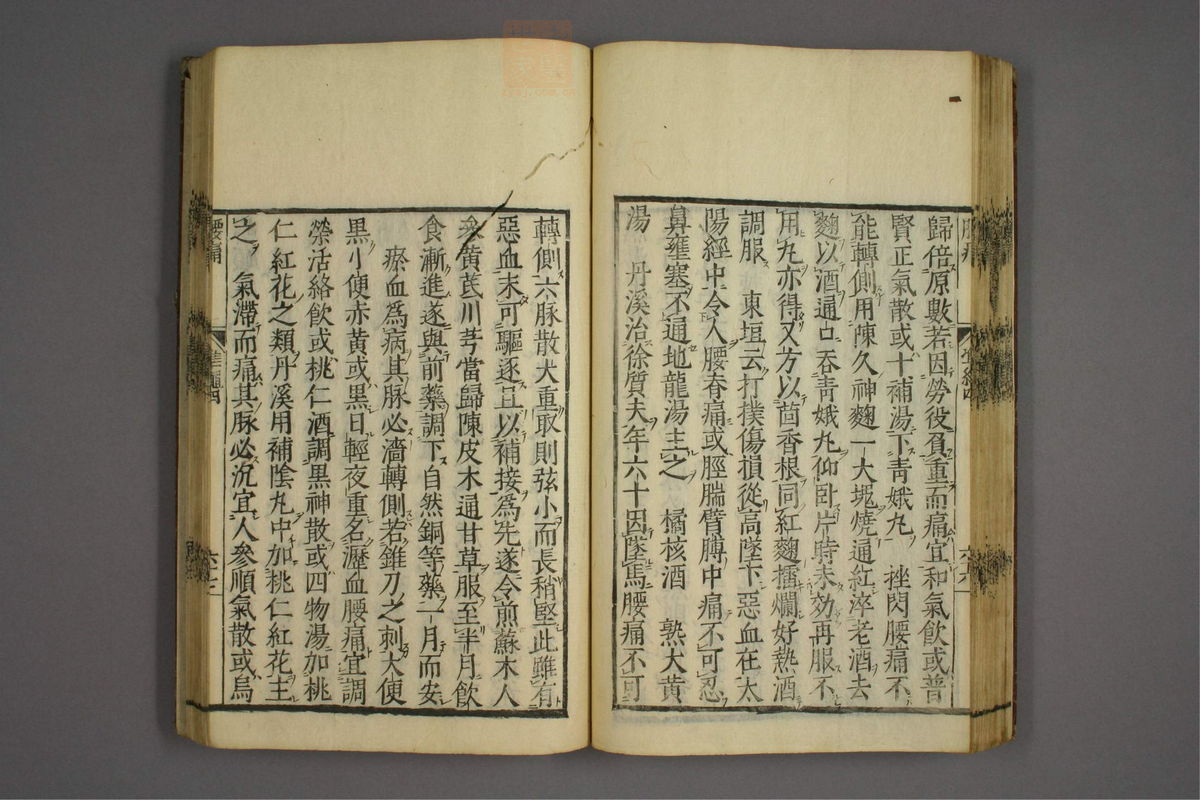 歸倍原數若因勞役負重而痛宜和氣飲或普
賢正氣散或十補湯下靑娥丸 挫閃腰痛不
能轉側用陳久神麴一大塊燒通紅淬老酒去
麴以酒通口吞靑娥丸仰臥片時未効再服不
用丸亦得又方以茴香根同紅麴擂爛好熱酒
調服 東垣云打撲傷損從高墜下惡血在太
陽經中令人腰脊痛或脛腨臂膊中痛不可忍
鼻壅塞不通地龍湯主之 橘核酒 熟大黃
湯 丹溪治徐質夫年六十因墜馬腰痛不可
轉側六脉散大重取則弦小而長稍堅此雖有
惡血未可驅逐且以補接爲先遂令煎蘇木人
參黃芪川芎當歸陳皮木通甘草服至半月飲
食漸進遂與前藥調下自然銅等藥一月而安
瘀血爲病其脉必濇轉側若錐刀之刺大便
黑小便赤黃或黑日輕夜重名瀝血腰痛宜調
榮活絡飲或桃仁酒調黑神散或四物湯加桃
仁紅花之類丹溪用補陰丸中加桃仁紅花主
之 氣滯而痛其脉必沉宜人參順氣散或烏
腰痛